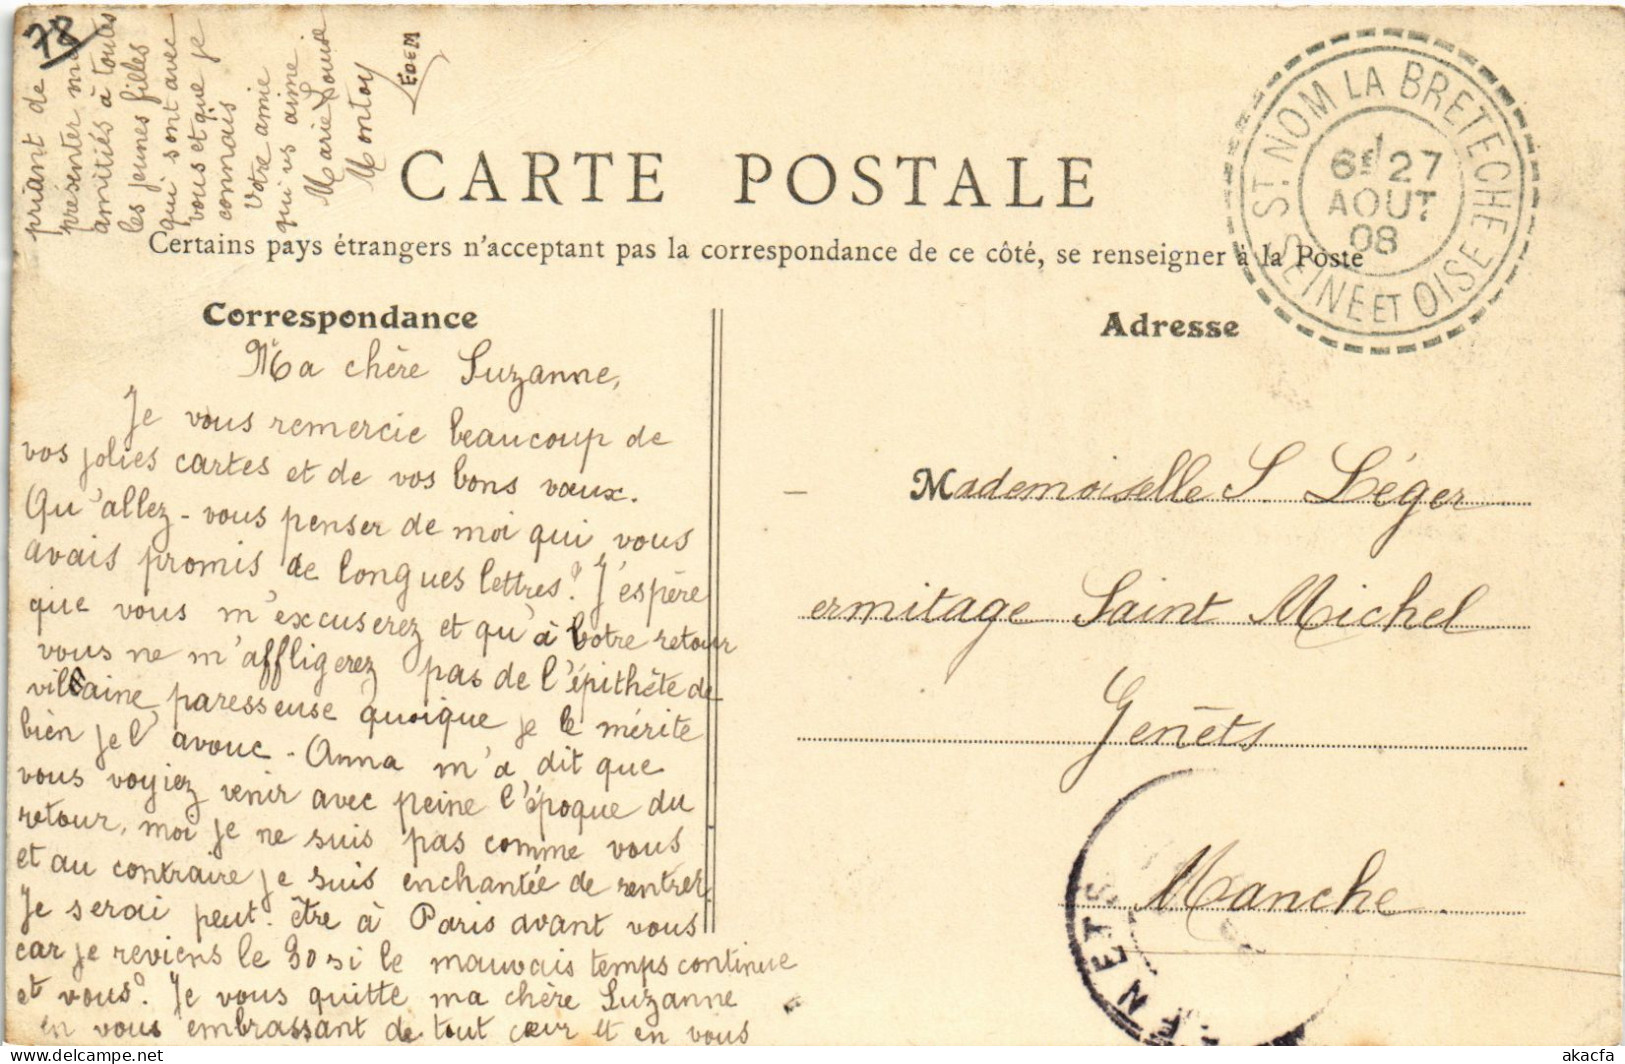 78
CARTE POSTALE
Certains pays étrangers n'acceptant pas la correspondance de ce côté, se renseigner à la Poste
ST. NOM LA BRETECHE
6E 27
AOUT
08
SEINE ET OISE
Correspondance
Ma chère Suzanne,
Je vous remercie beaucoup de
vos jolies cartes et de vos bons vœux.
Qu'allez-vous penser de moi qui vous
avais promis de longues lettres? J'espère
que vous m'excuserez et qu'à votre retour
vous ne m'affligerez pas de l'épithète de
vilaine paresseuse quoique je le mérite
bien je l'avoue - Anna m'a dit que
vous voyiez venir avec peine l'époque du
retour, moi je ne suis pas comme vous
et au contraire je suis enchantée de rentrer.
Je serai peut-être à Paris avant vous
car je reviens le 30 si le mauvais temps continue
et vous? Je vous quitte ma chère Suzanne
en vous embrassant de tout cœur et en vous
priant de
présenter mes
amitiés à toutes
les jeunes filles
qui sont avec
vous et que je
connais
Votre amie
qui vs aime
Marie Louise
Montoy
EDEM
Adresse
Mademoiselle S. Léger
ermitage Saint Michel
Genêts
Manche.
GENETS
akacfa
akacfa.com